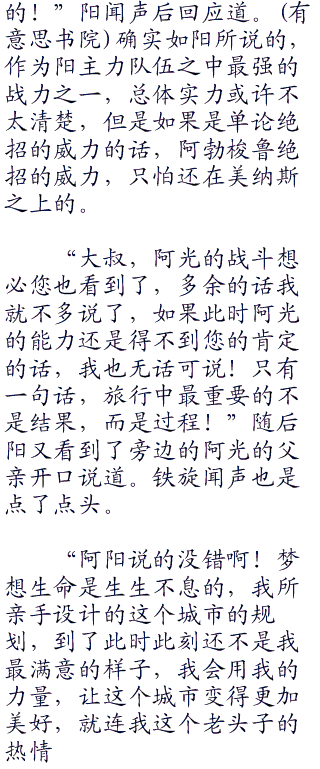 的！”阳闻声后回应道。(有
意思书院)确实如阳所说的，
作为阳主力队伍之中最强的
战力之一，总体实力或许不
太清楚，但是如果是单论绝
招的威力的话，阿勃梭鲁绝
招的威力，只怕还在美纳斯
之上的。
“大叔，阿光的战斗想
必您也看到了，多余的话我
就不多说了，如果此时阿光
的能力还是得不到您的肯定
的话，我也无话可说！只有
一句话，旅行中最重要的不
是结果，而是过程！”随后
阳又看到了旁边的阿光的父
亲开口说道。铁旋闻声也是
点了点头。
“阿阳说的没错啊！梦
想生命是生生不息的，我所
亲手设计的这个城市的规
划，到了此时此刻还不是我
最满意的样子，我会用我的
力量，让这个城市变得更加
美好，就连我这个老头子的
热情